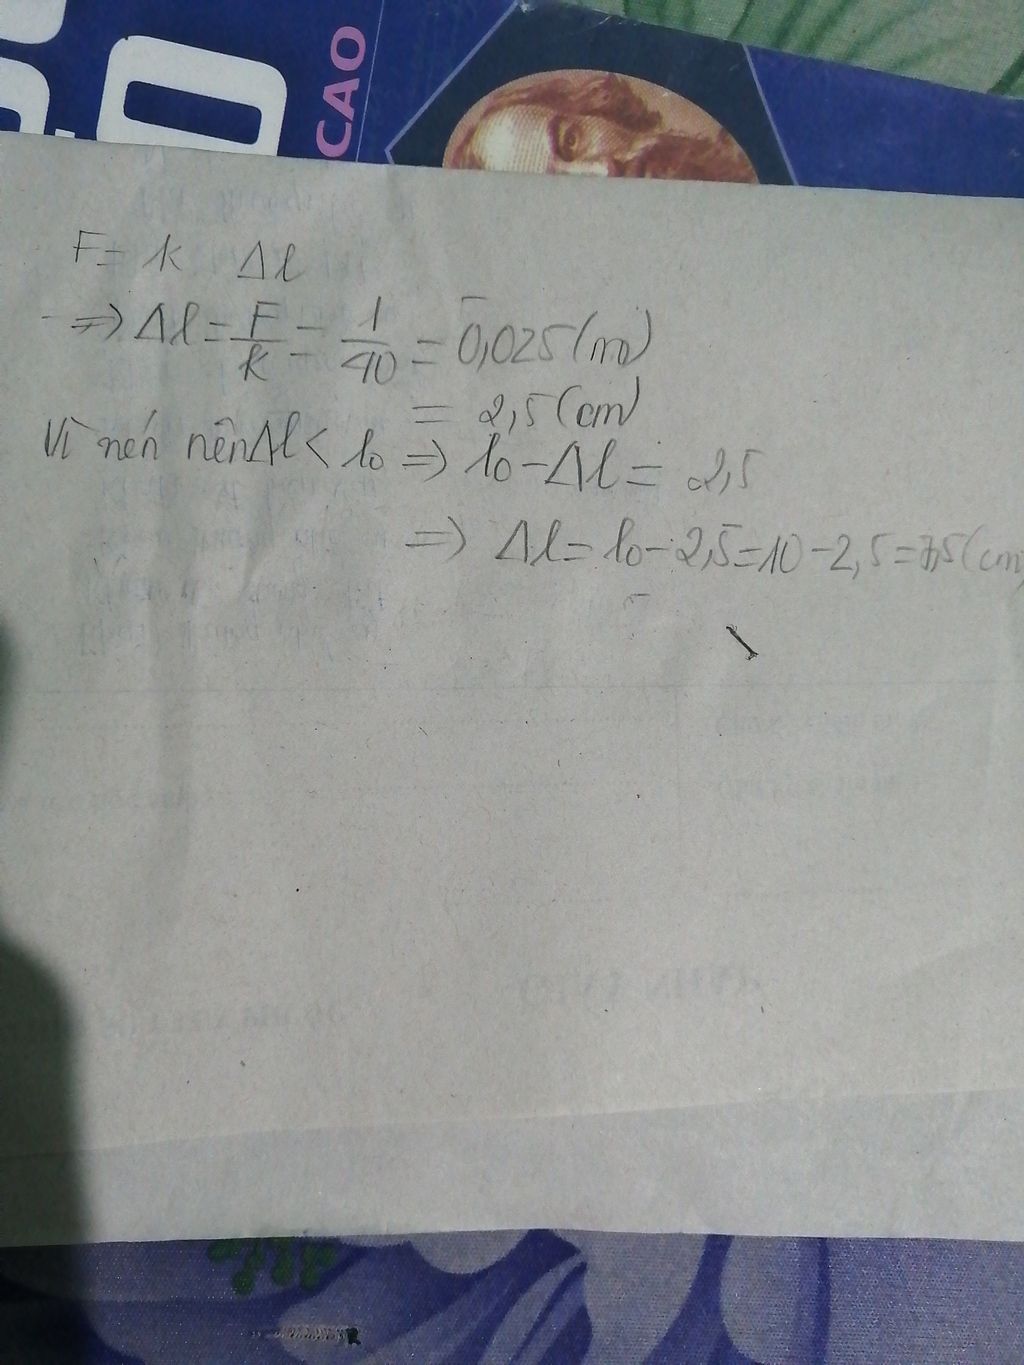 CAO
F = k Δl
=> Δl = F/k = 1/40 = 0,025 (m)
= 2,5 (cm)
Vì nén nên Δl < l₀ => l₀ - Δl = 2,5
=> Δl = l₀ - 2,5 = 10 - 2,5 = 7,5 (cm)